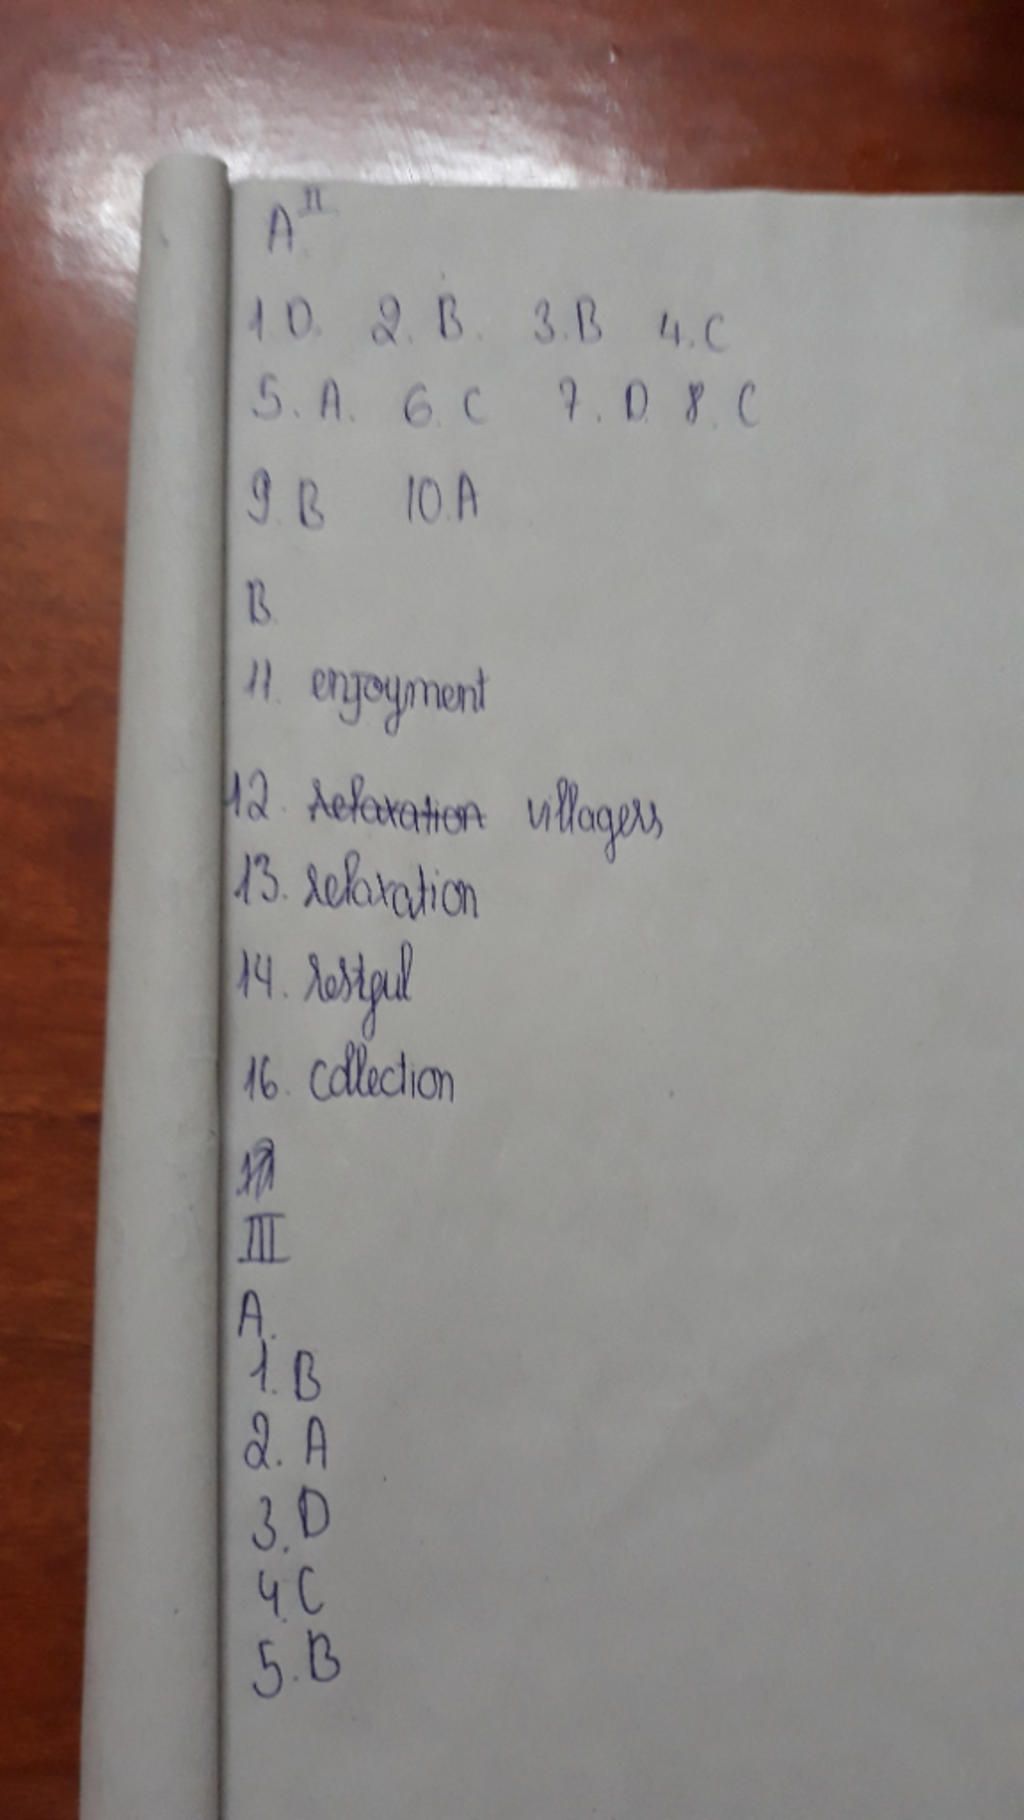 II
A.
1.D. 2.B. 3.B 4.C
5.A. 6.C 7.D. 8.C
9.B 10.A
B.
11. enjoyment
12. relaxation villagers
13. relaxation
14. restful
16. collection
III
A.
1.B
2.A
3.D
4.C
5.B